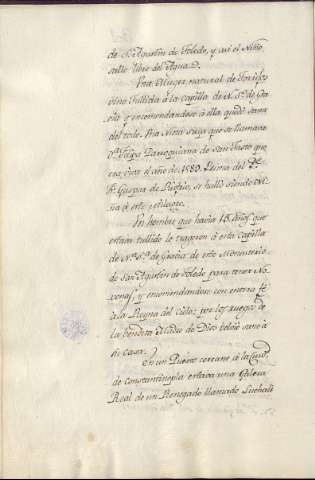 de S. Agustin de Toledo, y asi el Niño
salio libre del Agua.
Una Muger natural de
vino tullida à la capilla de N. S. de Gra
cia y encomendandose à ella, quedò sana
del todo. Una Nieta suya que se llamava
D.ª Felipa Parroquiana de San Justo que
vivia el año de 1580. Prima del P.e
F. Gaspar de se hallò siendo Ni
ña à este milagro.
Un hombre que havia 15 años que
estava tullido le trageron à esta capilla
de N.ª S.ª de Gracia de este Monasterio
de San Agustin de Toledo para tener No
venas, y encomendandose con entera fe
a la Reyna del cielo; por los ruegos de
la bendita Madre de Dios bolviò sano à
su casa.
En un Puerto cercano à la Ciud.
de Constantinopla estava una Galera
Real de un Renegado llamado Luchali